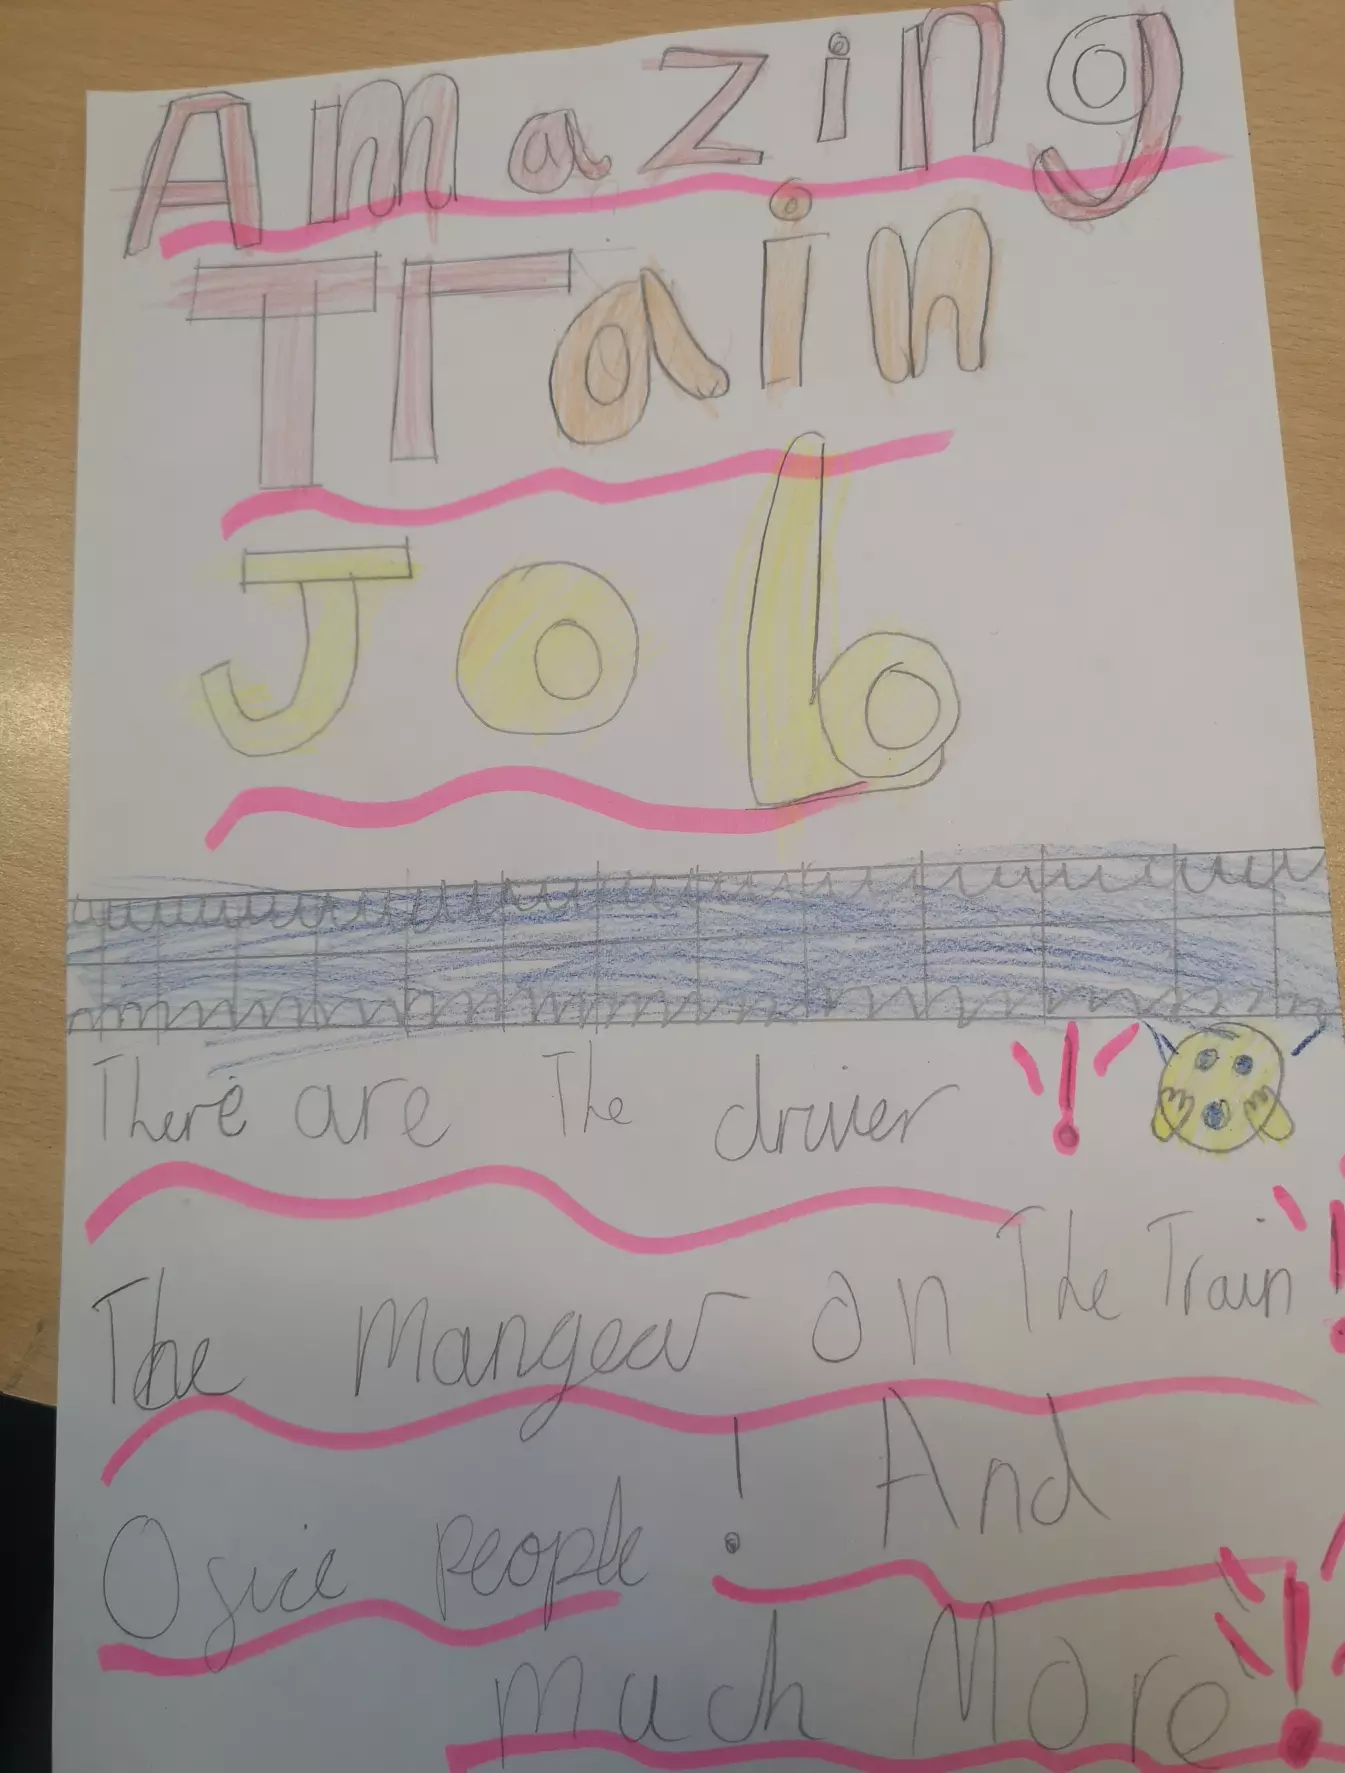 Amazing
Train
Job
There are The driver !
The Mangear on The Train !
Ofice people ! And
much More !